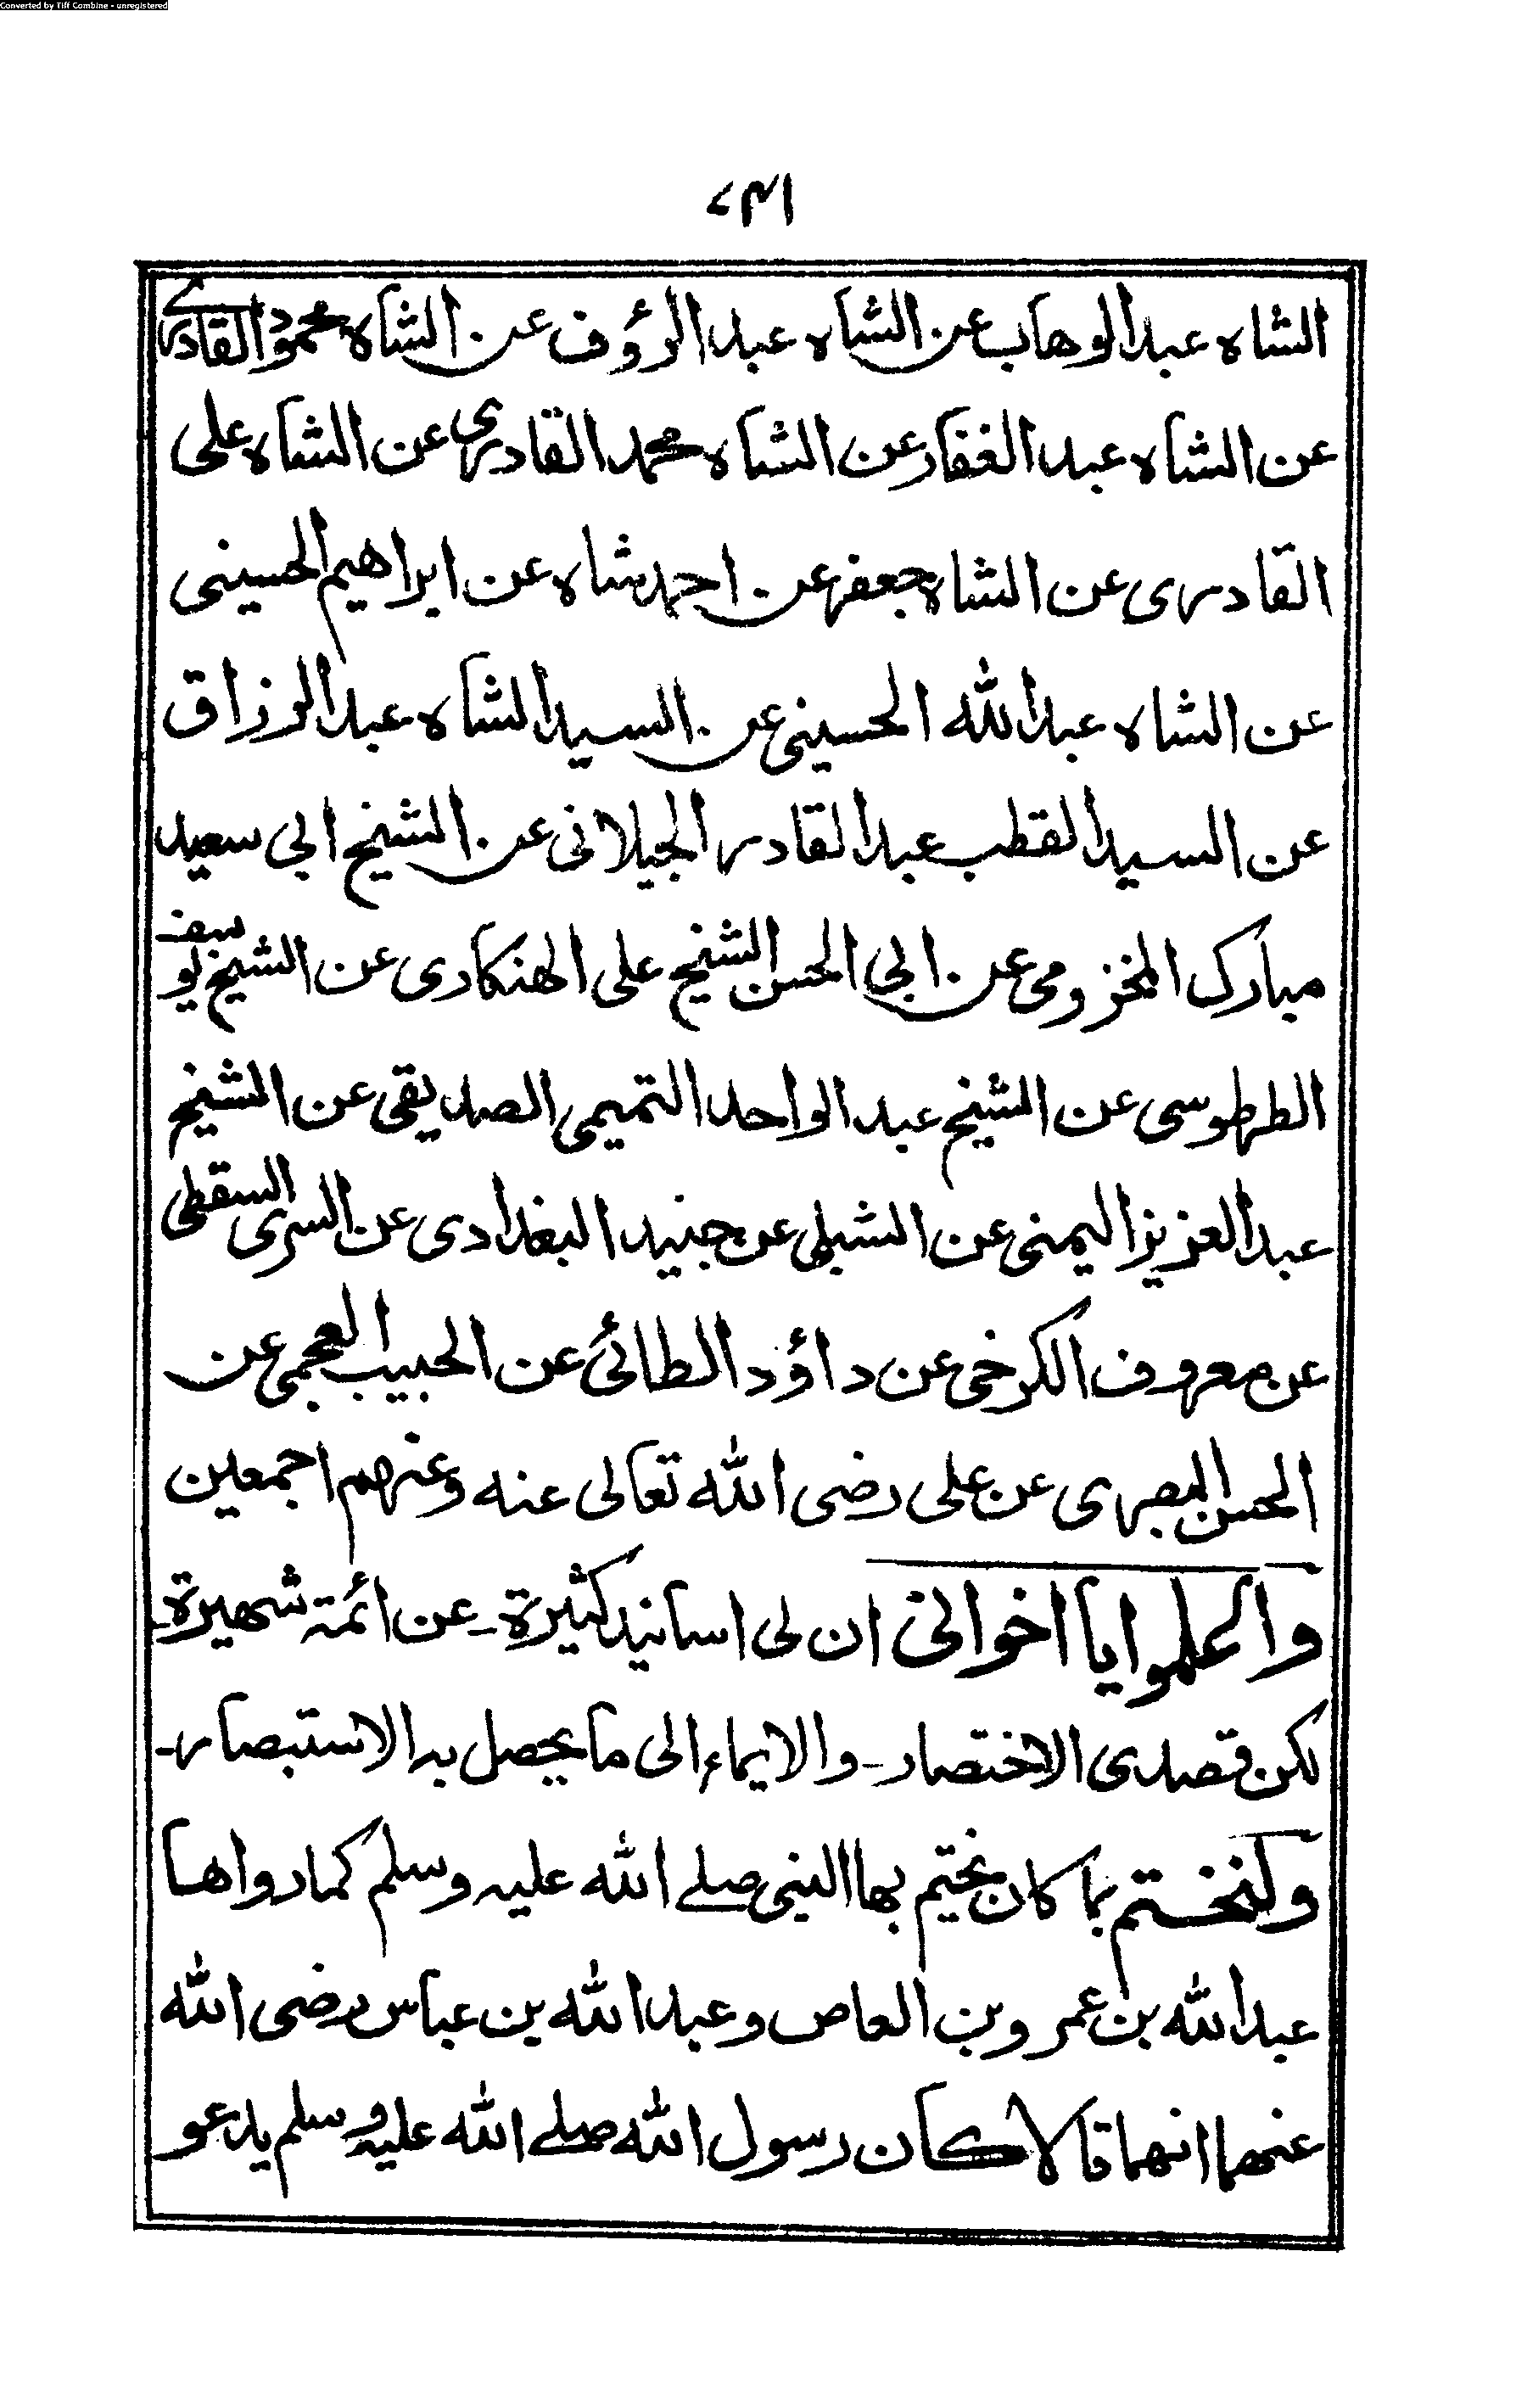 Converted by Tiff Combine - unregistered
الشاه عبد الوهاب عن الشاه عبد الرؤف عن الشاه محمود القادري
عن الشاه عبد الغفار عن الشاه محمد القادری عن الشاه علی
القادری عن الشاه جعفر عن احمد شاه عن ابراهیم الحسینی
عن الشاه عبد الله الحسینی عن السید الشاه عبد الرزاق
عن السید القطب عبد القادر الجیلانی عن الشیخ ابی سعید
مبارک المخزومی عن ابی الحسن الشیخ علی الهنکادی عن الشیخ یوسف
الطرطوسی عن الشیخ عبد الواحد التمیمی الصدیقی عن الشیخ
عبد العزیز الیمنی عن الشبلی عن جنید البغدادی عن السری السقطی
عن معروف الکرخی عن داؤد الطائی عن الحبیب العجمی عن
الحسن البصری عن علی رضی الله تعالی عنه وعنهم اجمعین
واعلموا یا اخوانی ان لی اسانید کثیرة۔ عن ائمة شهیرة۔
لکن قصدی الاختصار۔ والایماء الی ما یحصل به الاستبصار۔
ولنختم بما کان یختم بها النبی صلے الله علیه وسلم کما رواها
عبد الله بن عمرو بن العاص وعبد الله بن عباس رضی الله
عنهما انهما قالا کان رسول الله صلے الله علیه وسلم یدعو